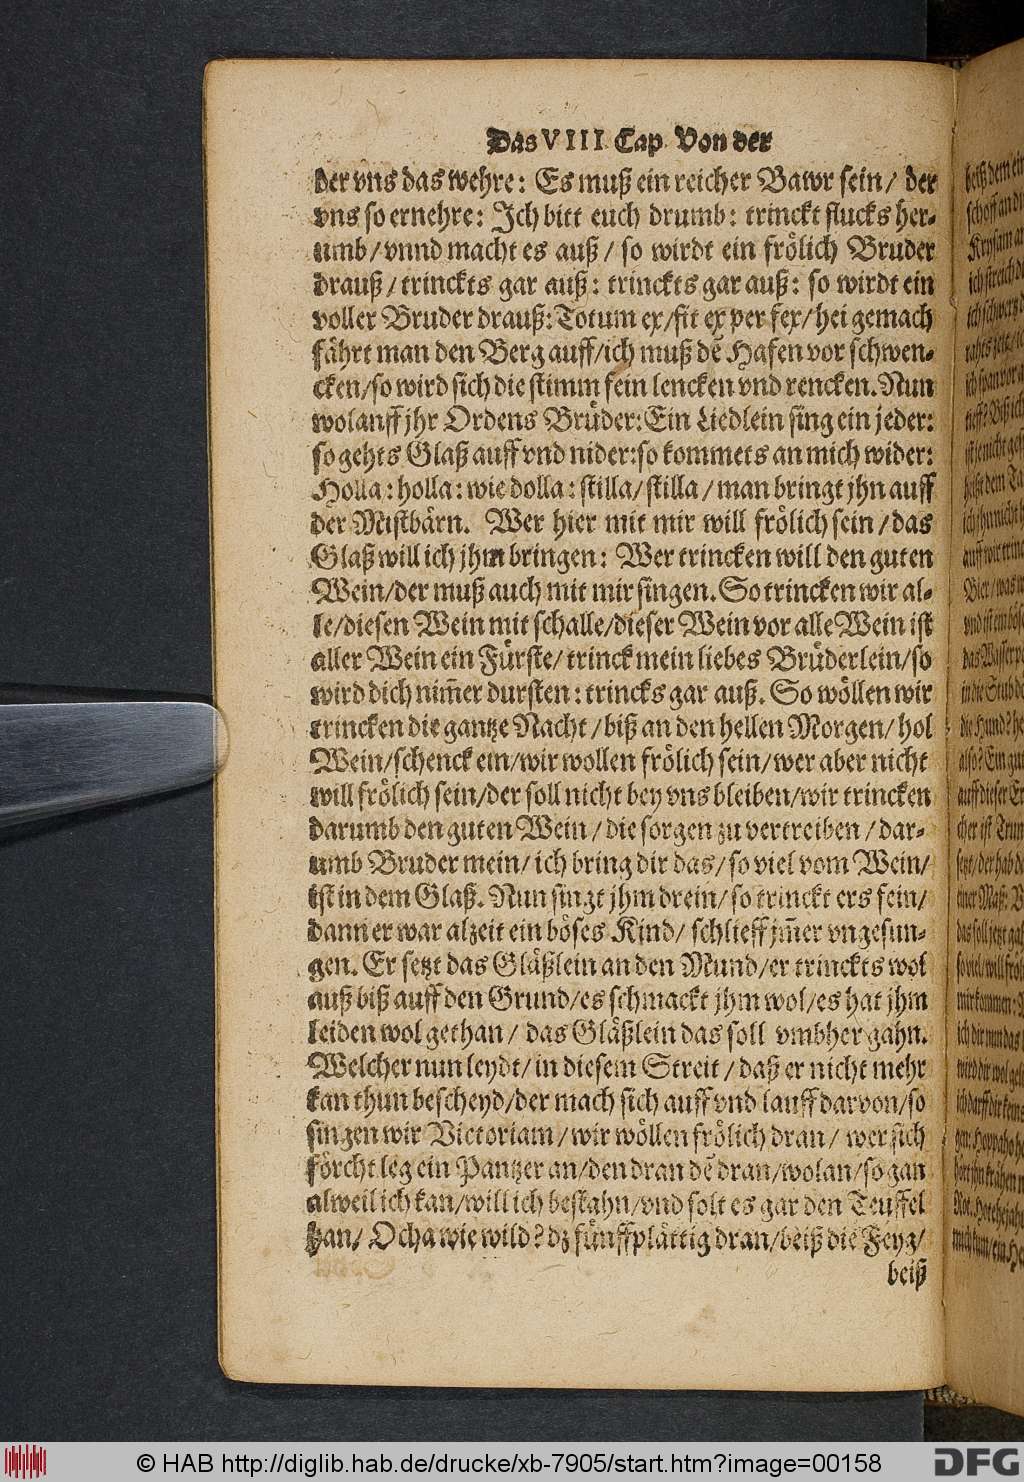 Das VIII Cap Von der
der vns das wehre: Es muß ein reicher Bawr sein/ der
vns so ernehre: Jch bitt euch drumb: trinckt flucks her-
umb/ vnnd macht es auß/ so wirdt ein frölich Bruder
drauß/ trinckts gar auß: trinckts gar auß: so wirdt ein
voller Bruder drauß: Totum ex/ fit ex per fex/ hei gemach
fährt man den Berg auff/ ich muß dẽ Hafen vor schwen-
cken/ so wird sich die stimm fein lencken vnd rencken. Nun
wolanff jhr Ordens Brüder: Ein Liedlein sing ein jeder:
so gehts Glaß auff vnd nider: so kommets an mich wider:
Holla: holla: wie dolla: stilla/ stilla/ man bringt jhn auff
der Mistbärn. Wer hier mit mir will frölich sein/ das
Glaß will ich jhm bringen: Wer trincken will den guten
Wein/ der muß auch mit mir singen. So trincken wir al-
le/ diesen Wein mit schalle/ dieser Wein vor alle Wein ist
aller Wein ein Fürste/ trinck mein liebes Brüderlein/ so
wird dich nim̃er dursten: trincks gar auß. So wöllen wir
trincken die gantze Nacht/ biß an den hellen Morgen/ hol
Wein/ schenck ein/ wir wollen frölich sein/ wer aber nicht
will frölich sein/ der soll nicht bey vns bleiben/ wir trincken
darumb den guten Wein/ die sorgen zu vertreiben/ dar-
umb Bruder mein/ ich bring dir das/ so viel vom Wein/
ist in dem Glaß. Nun singt jhm drein/ so trinckt ers fein/
dann er war alzeit ein böses Kind/ schlieff jm̃er vngesun-
gen. Er setzt das Gläßlein an den Mund/ er trinckts wol
auß biß auff den Grund/ es schmackt jhm wol/ es hat jhm
leiden wol gethan/ das Gläßlein das soll vmbher gahn.
Welcher nun leydt/ in diesem Streit/ daß er nicht mehr
kan thun bescheyd/ der mach sich auff vnd lauff darvon/ so
singen wir Victoriam/ wir wöllen frölich dran/ wer sich
förcht leg ein Pantzer an/ den dran dẽ dran/ wolan/ so gan
alweil ich kan/ will ich beskahn/ vnd solt es gar den Teuffel
han/ Ocha wie wild? dz fünffplättig dran/ beiß die Feyg/
beiß
© HAB http://diglib.hab.de/drucke/xb-7905/start.htm?image=00158
DFG